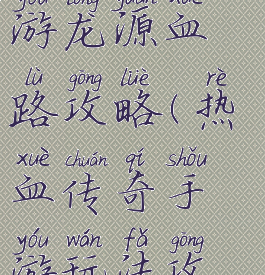 yóu lóng yuán xuè
游龙源血
lù gōng lüè rè
路攻略(热
xuè chuán qí shǒu
血传奇手
yóu wán fǎ gōng
游玩法攻